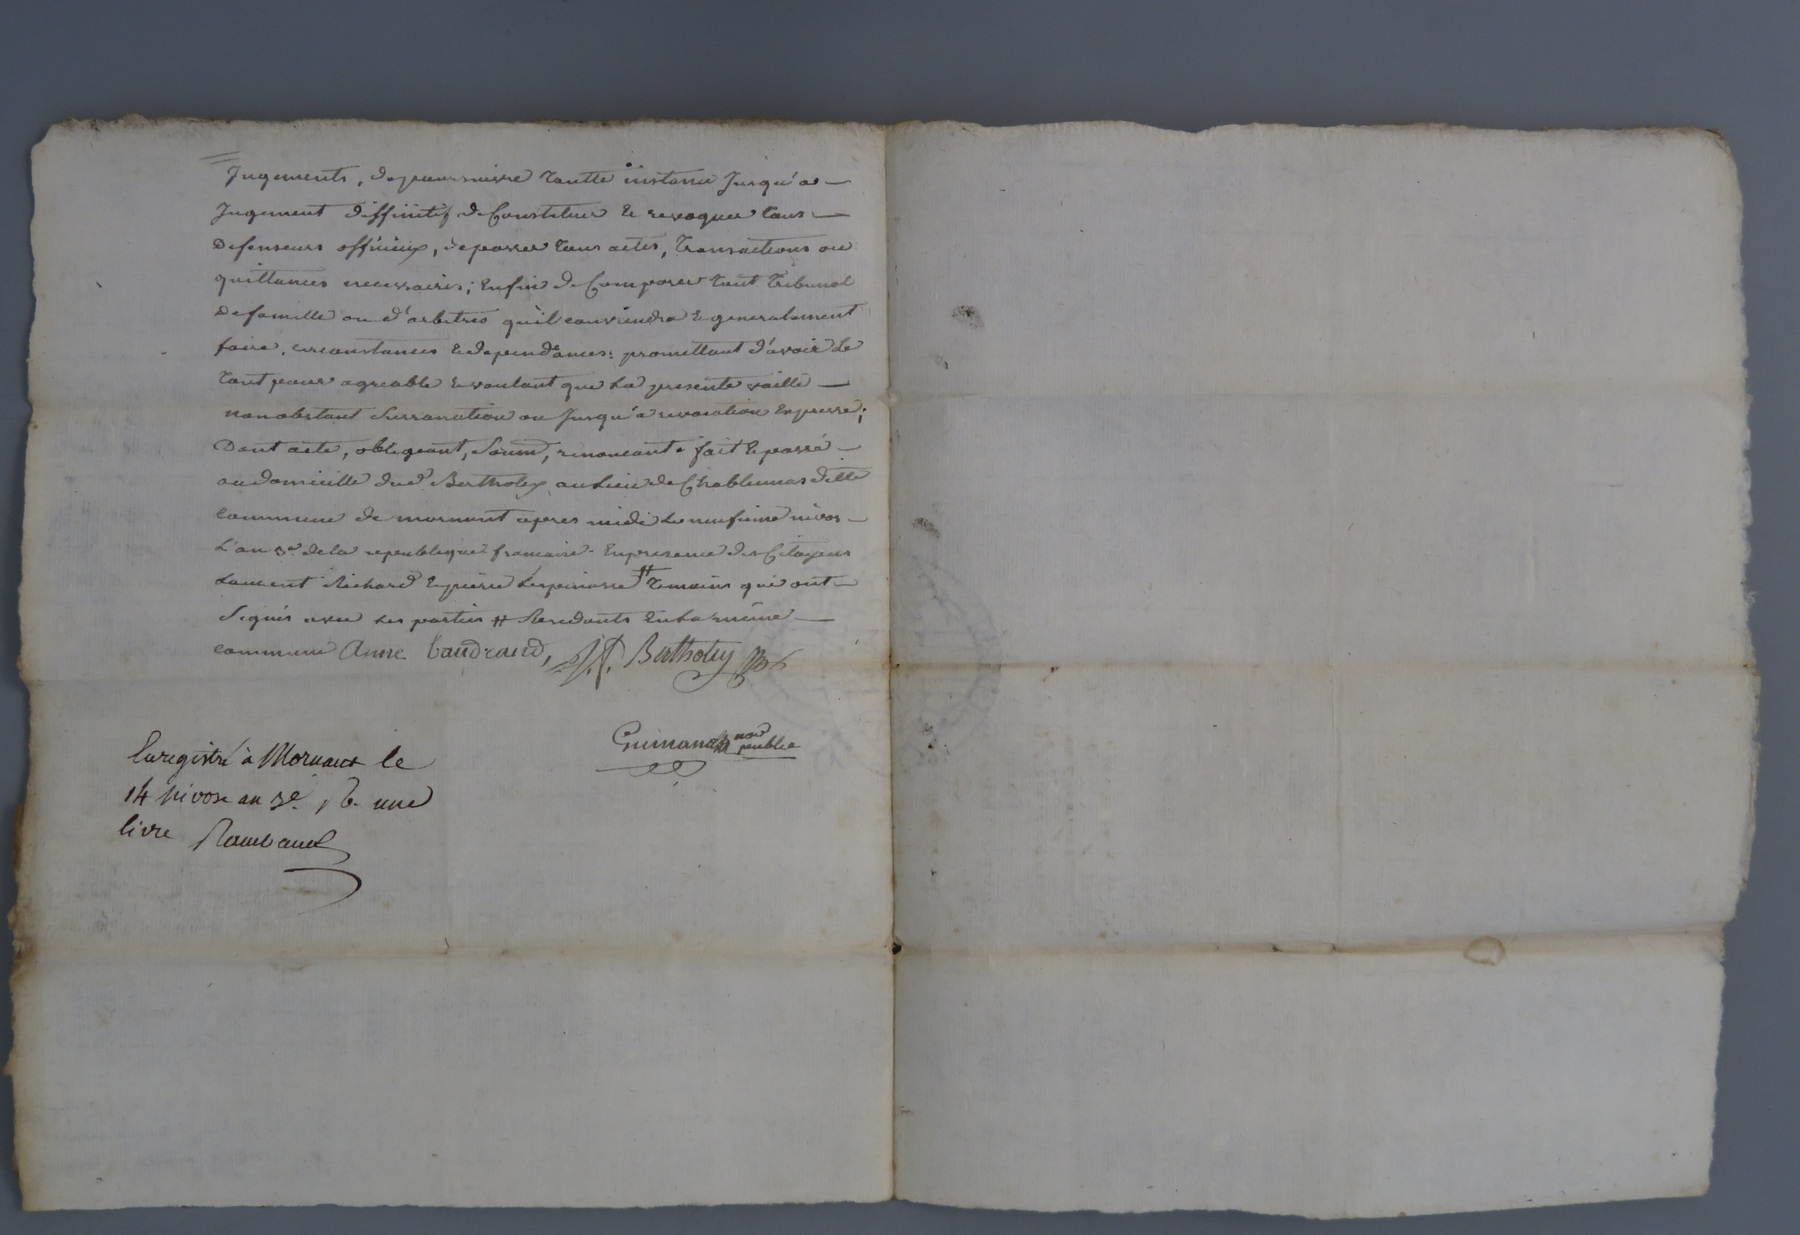 Jugements, de poursuivre toutte instance Jusqu'a
Jugement diffinitif de Constituer & revoquer tous
Defenseurs officieux, de passer tous actes, Transactions ou
quittances necessaires; Enfin de Composer tout Tribunal
De famille ou d'arbitres qu'il conviendra & generalement
faire, circonstances & dependances: promettant d'avoir le
tout pour agreable & voulant que la presente vaille
nonobstant Surranation ou Jusqu'a revocation Expresse;
Dont acte, obligeant, Soum, renonceant fait & passé
au domicille dud. Bertholey au Lieu de Chablennas ditte
commune de mornant apres midi Le neufieme nivos
L'an 3e. de la republique francaise. En presence des Citoyens
Laurent Richard & pierre Lespinasse # temoins qui ont
Signés avec les parties # Residants En la même
commune Anne baudrand, J. P. Bertholey
Guinand nore public
Enregistré à Mornant le
14 Nivose an 3e. R. une
livre Rambaud